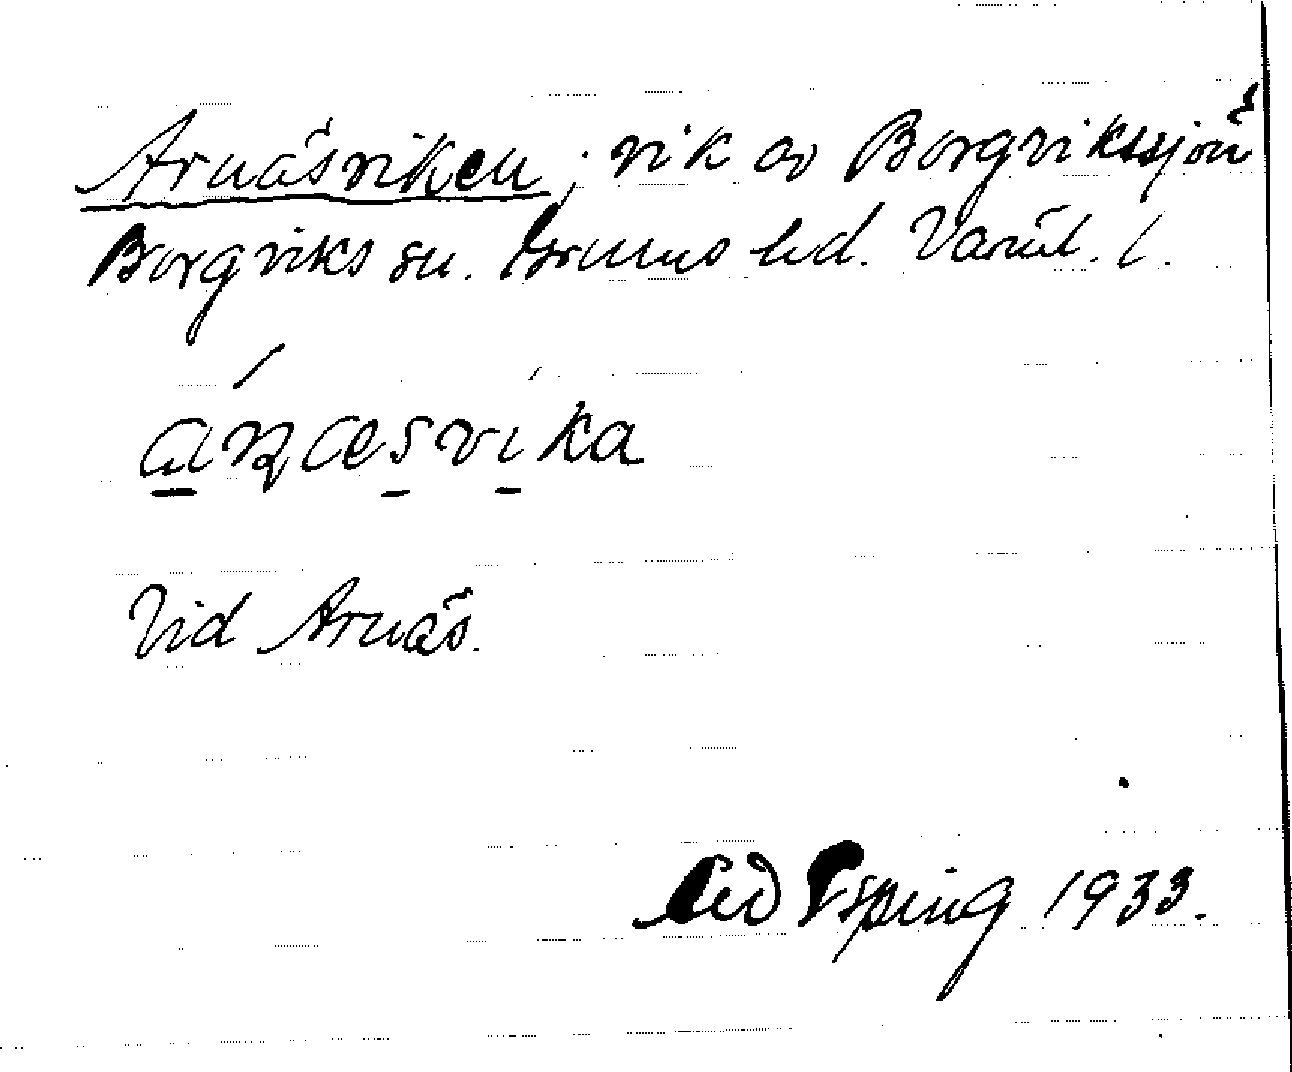 Arnäsviken, vik av Borgvikssjön
Borgviks sn. Grums hd. Värml. l.
áɳæsvíka
Vid Arnäs.
Esping 1933.